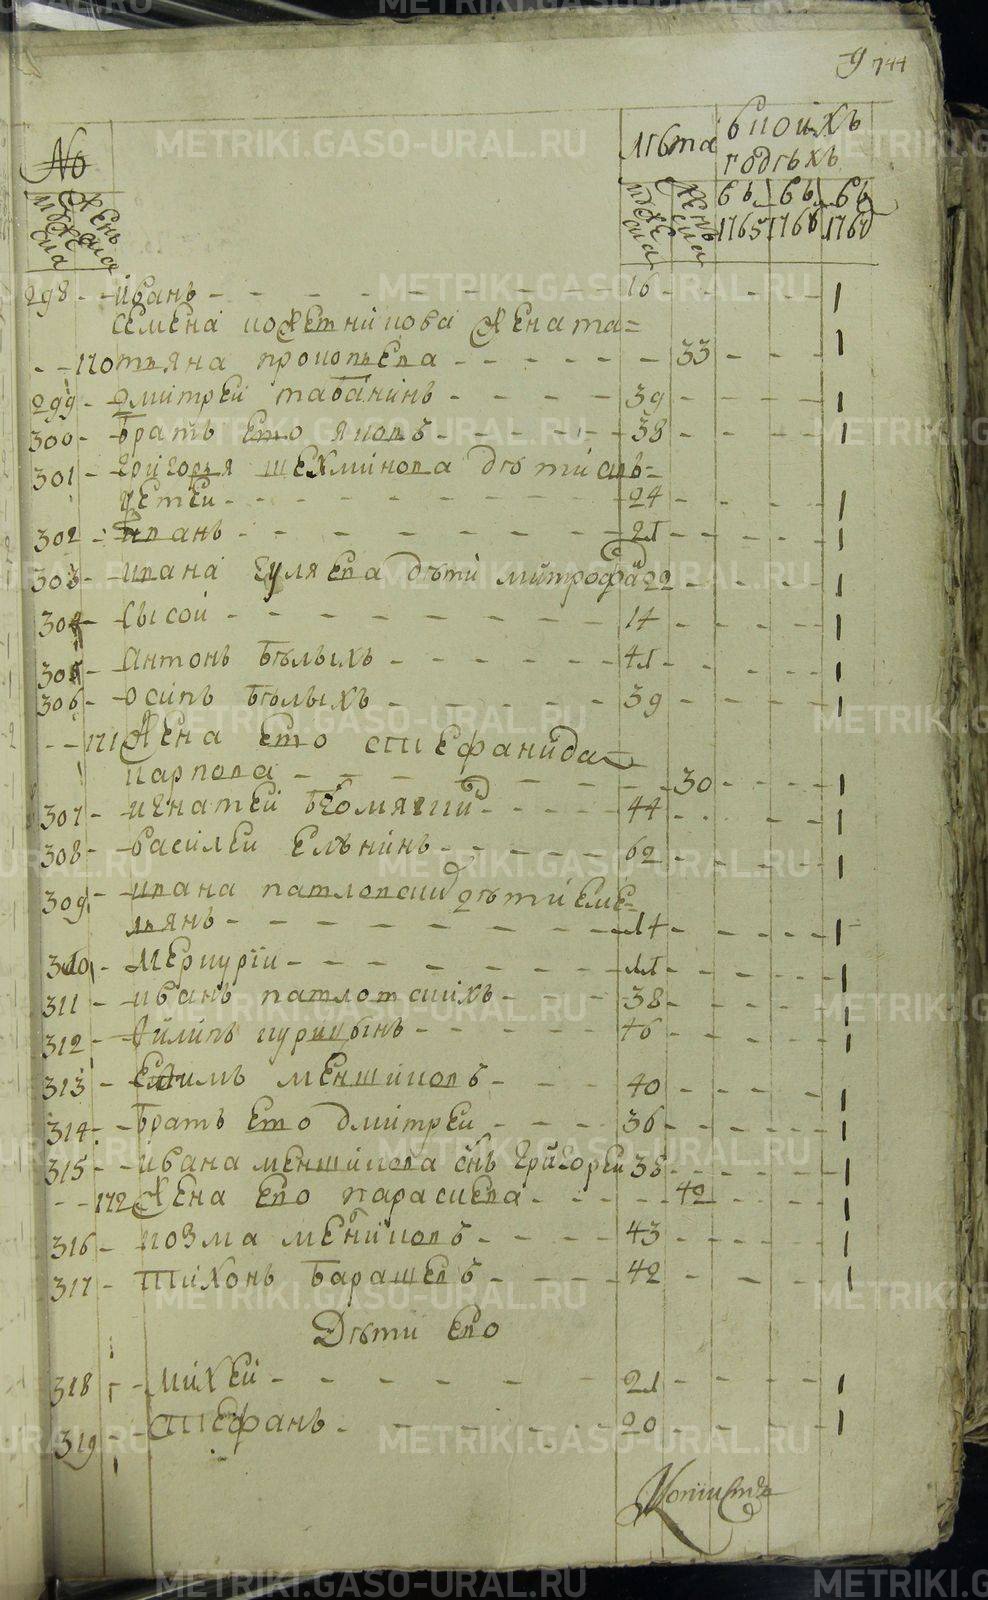 9 744
№ лѣта в коихъ
годѣхъ
мужеска женска мужеска женска въ 1765 въ 1766 въ 1767
298 - иванъ - 16
семена кожетникова жена та=
170 тьяна прокопьева - 33
299 - дмитрей табанинъ - 39
300 - братъ его яковъ - 38
301 - григорья шехминова дѣти ав=
детей - 24
302 - иванъ - 21
303 - ивана гуляева дѣти митрофа 22
304 - сысой - 14
305 - антонъ бѣлыхъ - 41
306 - осипъ бѣлыхъ - 39
171 жена его стефанида
карпова - 30
307 - игнатей богомягкий - 44
308 - василей елѣнинъ - 62
309 - ивана патловски дѣти еме=
льянъ - 14
310 - меркурїи - 11
311 - иванъ патловскихъ - 38
312 - филипъ курицынъ - 46
313 - ефимъ меншиковъ - 40
314 - братъ его дмитреи - 36
315 - ивана меншикова снъ григореи 38
172 жена его парасковья - 42
316 - козма меншиковъ - 43
317 - тихонъ барашевъ - 42
Дѣти его
318 - михей - 21
319 - стефанъ - 20
Копиистъ